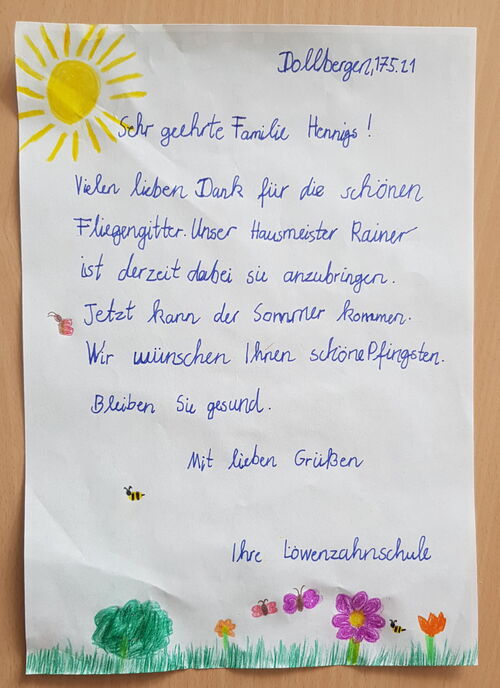 Dollbergen, 17.5.21
Sehr geehrte Familie Hennigs!
Vielen lieben Dank für die schönen
Fliegengitter. Unser Hausmeister Rainer
ist derzeit dabei sie anzubringen.
Jetzt kann der Sommer kommen.
Wir wünschen Ihnen schöne Pfingsten.
Bleiben Sie gesund.
Mit lieben Grüßen
Ihre Löwenzahnschule